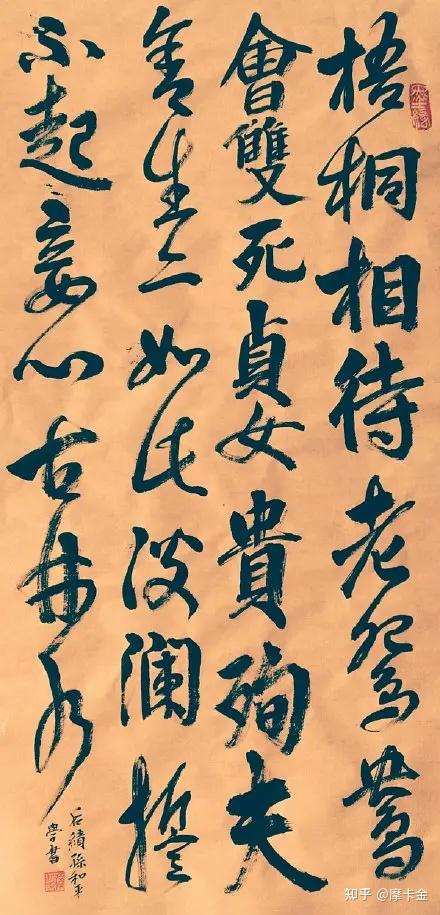 梧桐相待老鴛鴦
會雙死貞女貴殉夫
舍生亦如此波澜誓
不起妾心古井水
孫和平
學書
墨緣
知乎 @摩卡金